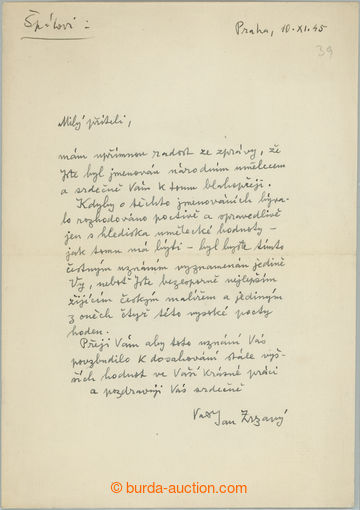 Špálovi :
Praha, 10. XI. 45
39
Milý příteli,
mám upřímnou radost ze zprávy, že
jste byl jmenován národním umělcem
a srdečně Vám k tomu blahopřeji.
Kdyby o těchto jmenováních býva-
lo rozhodováno poctivě a spravedlivě
jen s hlediska umělecké hodnoty –
jak tomu má býti – byl byste tímto
čestným uznáním vyznamenán jedině
Vy, neboť jste bezesporně nejlepším
žijícím českým malířem a jediným
z oněch čtyř této vysoké pocty
hoden.
Přeji Vám aby toto uznání Vás
povzbudilo k dosahování stále vyš-
ších hodnot ve Vaší krásné práci
a pozdravuji Vás srdečně
Váš Jan Zrzavý
burda-auction.com